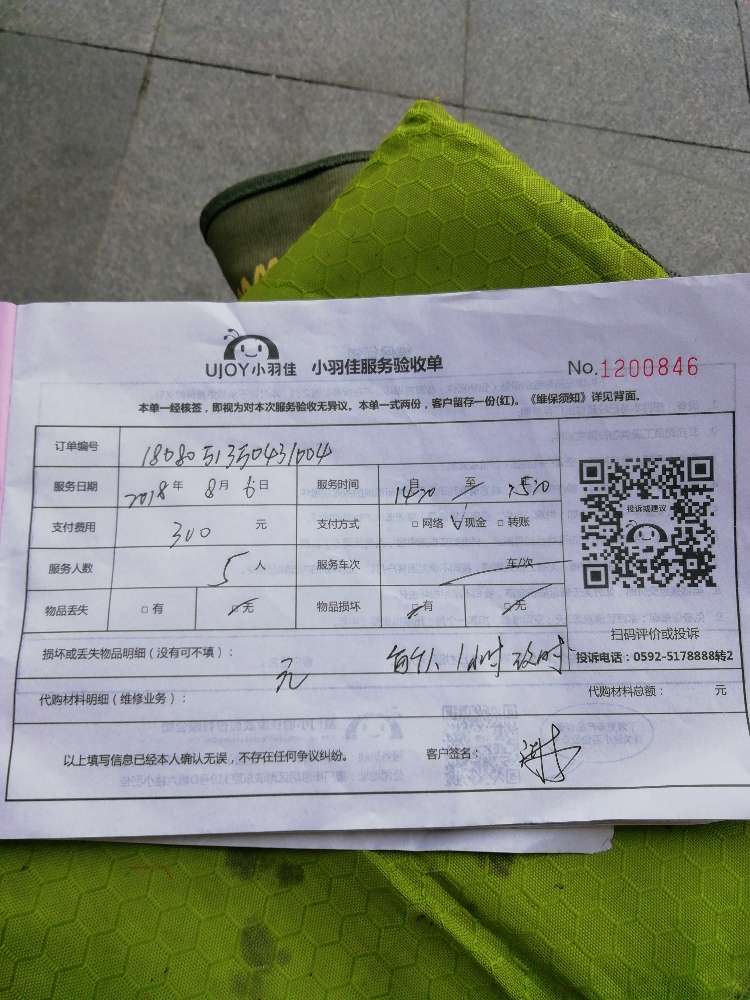 UJOY小羽佳 小羽佳服务验收单 No.1200846
本单一经核签，即视为对本次服务验收无异议。本单一式两份，客户留存一份(红)。《维保须知》详见背面。
订单编号 1808051350431004
服务日期 2018年 8月 6日 服务时间 自 1420 至
支付费用 300 元 支付方式 □网络 ☑现金 □转账
服务人数 5 人 服务车次 车/次
物品丢失 □有 ☑无 物品损坏 □有 □无
投诉或建议
扫码评价或投诉
投诉电话：0592-5178888转2
损坏或丢失物品明细（没有可不填）： 无 1小时
代购材料明细（维修业务）： 代购材料总额： 元
以上填写信息已经本人确认无误，不存在任何争议纠纷。 客户签名：